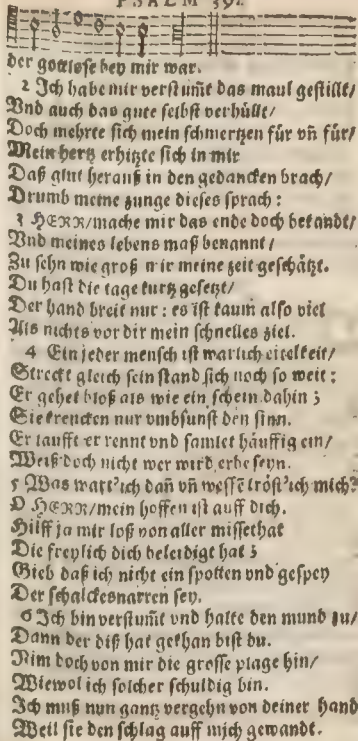 PSALM 39.
der gottlose bey mir war.
2 Ich habe mir verstum̃t das maul gestillt/
Vnd auch das gute selbst verhüllt/
Doch mehrte sich mein schmertzen für vñ für/
Mein hertz erhitzte sich in mir
Daß glut herauß in den gedancken brach/
Drumb meine zunge dieses sprach:
3 HERR/mache mir das ende doch bekandt/
Vnd meines lebens maß benannt/
Zu sehn wie groß mir meine zeit geschätzt.
Du hast die tage kurtz gesetzt/
Der hand breit nur: es ist kaum also viel
Als nichts vor dir mein schnelles ziel.
4 Ein jeder mensch ist warlich eitelkeit/
Streckt gleich sein stand sich noch so weit;
Er gehet bloß als wie ein schein dahin;
Sie krencken nur vmbsunst den sinn.
Er laufft er rennt vnd samlet häuffig ein/
Weiß doch nicht wer wird erbe seyn.
5 Was wart' ich dañ vñ wesse tröst' ich mich?
O HERR/mein hoffen ist auff dich.
Hilff ja mir loß von aller missethat
Die freylich dich beleidigt hat;
Gieb daß ich nicht ein spotten vnd gespey
Der schalckesnarren sey.
6 Ich bin verstum̃t vnd halte den mund zu/
Dann der diß hat gethan bist du.
Nim doch von mir die grosse plage hin/
Wiewol ich solcher schuldig bin.
Ich muß nun gantz vergehn von deiner hand
Weil sie den schlag auff mich gewandt.